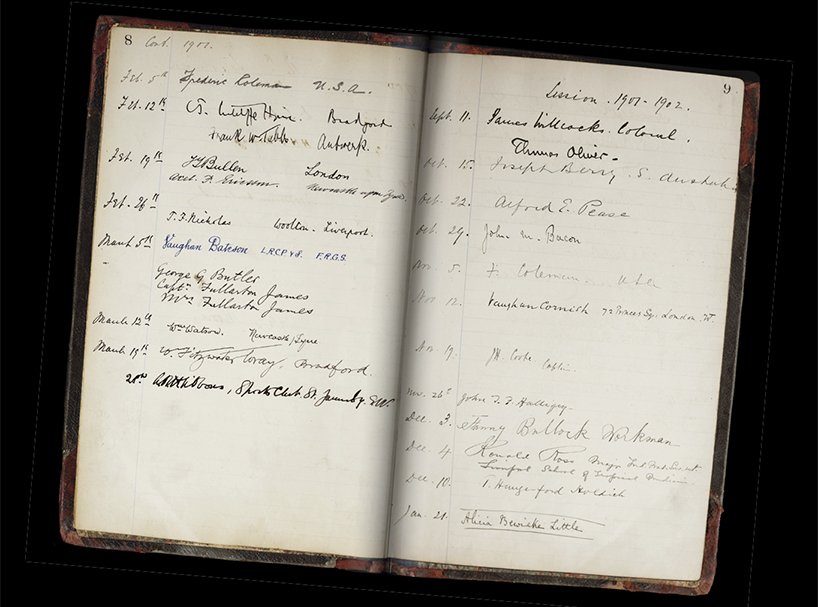 8 Cont. 1901.
Feb. 5th Frederic Coleman U.S.A.
Feb. 12th C. J. Cutcliffe Hyne. Bradford
Frank W. Tubbs. Antwerp.
Feb. 19th F. T. Bullen London
Axel F. Ericsson. Newcastle upon Tyne.
Feb. 26th T. F. Nicholas Woolton. Liverpool.
March 5th Vaughan Bateson L.R.C.P. & S. F.R.G.S.
George G Butler
Captn Fullarton James
Mrs Fullarton James
March 12th Wm Watson. Newcastle/Tyne
March 19th W. Fitzwater Wray, Bradford.
28th Sports Club. St. James Sq. S.W.
9
Session. 1901-1902.
Sept. 11. James Willcocks. Colonel.
Thomas Oliver-
Oct. 15. Joseph Berry. S. Australia
Oct. 22. Alfred E. Pease
Oct. 29. John. M. Bacon
Nov. 5. F. Coleman. USA
Nov 12. Vaughan Cornish 72 Princes Sq. London. W.
Nov. 19. Cooke Captn.
Nov. 26th John T. F. Halligey
Dec. 3. Fanny Bullock Workman
Dec. 4. Ronald Ross Major Ind. Med. Service ret
Liverpool School of Tropical Medicine
Dec. 10. T. Hungerford Holdich
Jan. 21. Alicia Bewicke Little